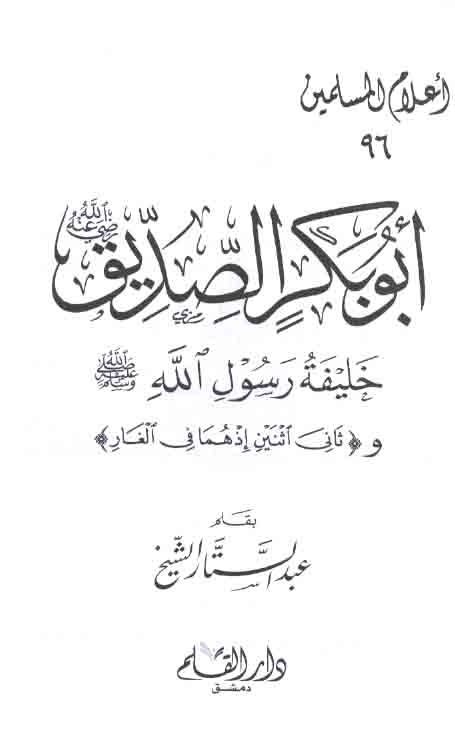 أعلام المسلمين
٩٦
أبو بَكْرٍ الصِّدِّيق رَضِيَ اللَّهُ عَنْهُ
خَلِيْفَةُ رَسُوْلِ اللَّهِ ﷺ
و ﴿ ثَانِيَ اثْنَيْنِ إِذْ هُمَا فِي الْغَارِ ﴾
بقَلم
عبد السَّتَّار الشَّيخ
دار القلم
دمشق